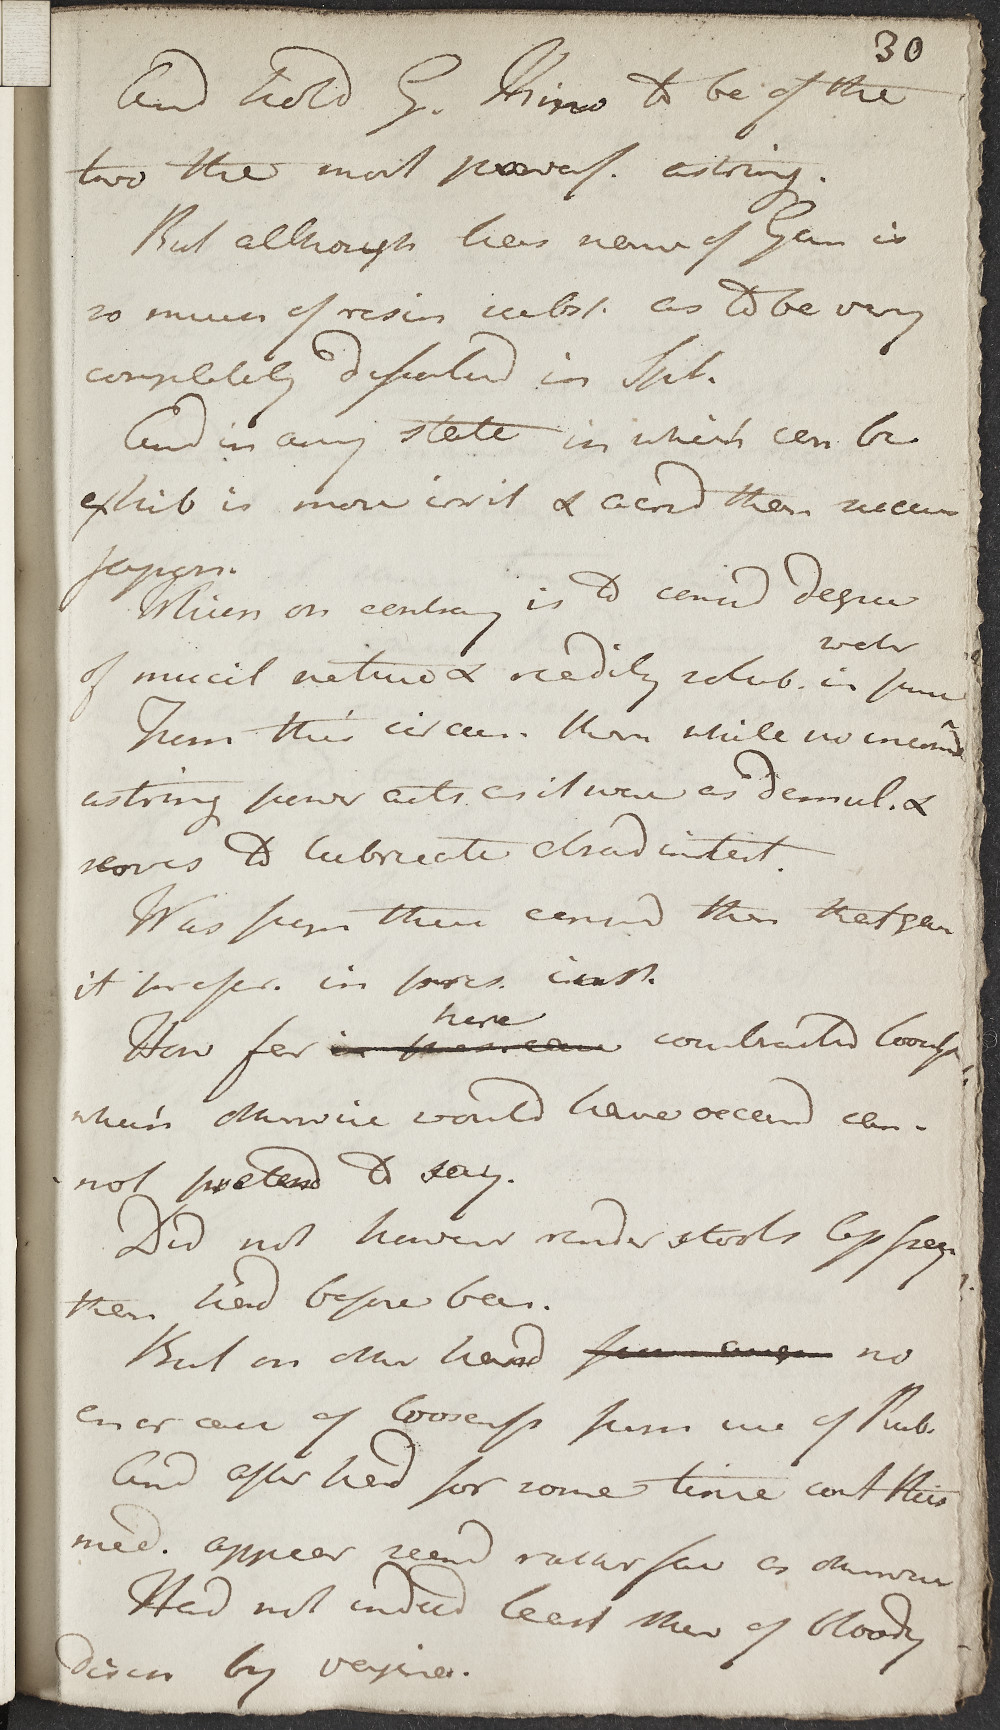 30
And hold G. Kino to be of the
two the most powerf. astring.
But although has name of Gum is
so much of resin subst. as to be very
completely dissolved in Spt.
And in any state in which can be
exhib is more irrit & acrid than succus
Japon.
Which on contrary is to considd degree
of mucil nature & readily solub. in pure
water
From this circum. then while no inconsid
astring power acts as it were as demul. &
serves to lubricate abrad intest.
Was from these considd then that gave
it prefer. in pres. inst.
How far here contracted loosness
which otherwise would have occurrd can-
not pretend to say.
Did not however render stools less freq
than had before been.
But on other hand no
increase of loosness from use of Rub.
And after had for some time cont this
med. appear seemd rather few as otherwise
Had not indeed least shew of bloody
disch by vagina.